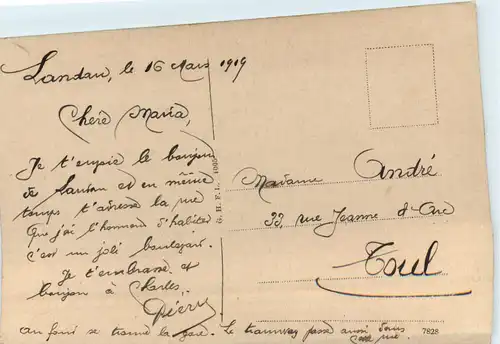 Landau, le 16 Mars 1919
Chère Maria,
Je t'envoie le bonjour
de Landau et en même
temps t'adresse la rue
que j'ai l'honneur d'habiter
c'est un joli boulevard.
Je t'embrasse et
bonjour à Charles.
Pierre
au fond se trouve la gare. Le tramway passe aussi dans
cette rue.
G. H. F. L. 1909
Madame André
33, rue Jeanne d'Arc
Toul
7828